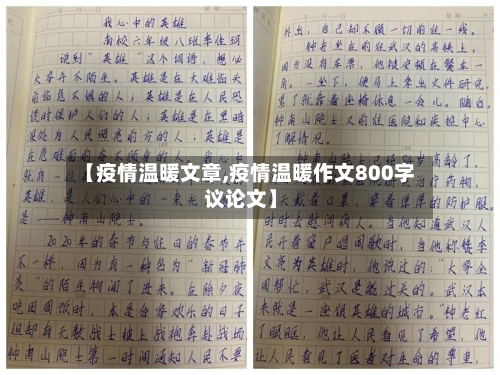 我心中的英雄
南校六年级八班李佳珂
说到“英雄”这个词语，想必
大家并不陌生。英雄是在大难临头
前临危不惧的人；英雄是在人民恐
慌时保护人们的人；英雄是在黑暗
深处为人民照亮前方的人；英雄是
在危难面前
就是
是，是人们心中的一束光
是——钟南山院士。
2020年的春节与往日的春节并
不一样，因为有一种名为“新冠肺
炎”的陌生物闯了进来。在除夕夜
吃团圆饭时，本是合家欢乐的日子
但却有无数战士披上战袍奔赴战场
钟南山院士第一时间通知人民不要
外出，自己却不顾一切前往一线。
钟老坐在前往武汉的高铁上，
因为没有车票，他被安顿在餐车一
角。一坐下，便马上拿出文件研究，
累了就靠着座椅休息一会儿。随后，
钟南山院士又前往医院和疾控中心
了解情况。
高龄了，
药物，
天戴着口罩，穿着厚厚的防护服。
时时去慰问病人。当他知道武汉人
民开着窗户唱国歌时，当他称赞李
文亮为英雄时，他说过的：“大家全
国帮忙，武汉是能过关的。武汉本
来就是一座很英雄的城市。”钟老红
了眼眶，他让人民看见了希望，他
让人民看见了医者对生命的尊重，
【疫情温暖文章,疫情温暖作文800字
议论文】